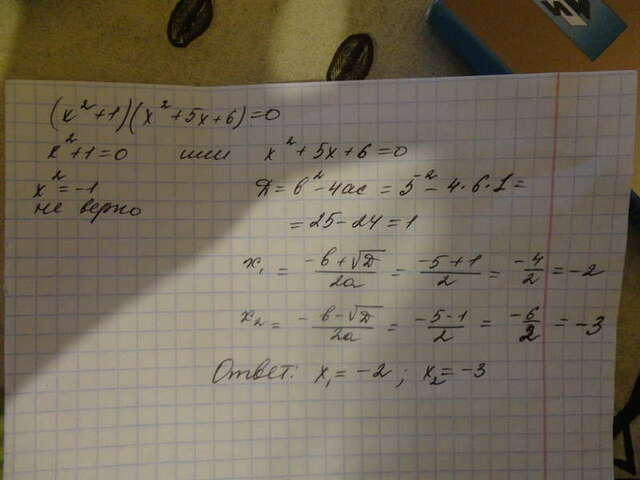 (x²+1)(x²+5x+6)=0
x²+1=0 или x²+5x+6=0
x²=-1
не верно
Д=в²-4ас=5²-4·6·1=
=25-24=1
x₁=(-в+√Д)/2а=(-5+1)/2=-4/2=-2
x₂=(-в-√Д)/2а=(-5-1)/2=-6/2=-3
Ответ: x₁=-2; x₂=-3